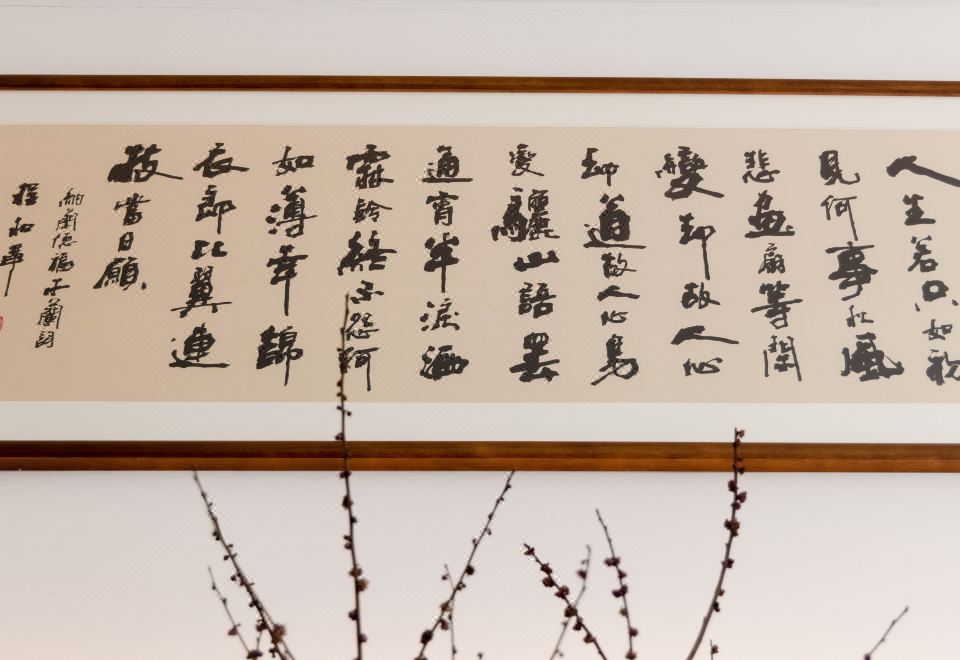 人生若只如初
見何事秋風
悲畫扇等閑
變却故人心
却道故人心易
變驪山語罷
通宵半淚
霖鈴終不怨何
如薄幸錦
衣郎比翼連
枝當日願
納蘭德福 蘭詞
程和平